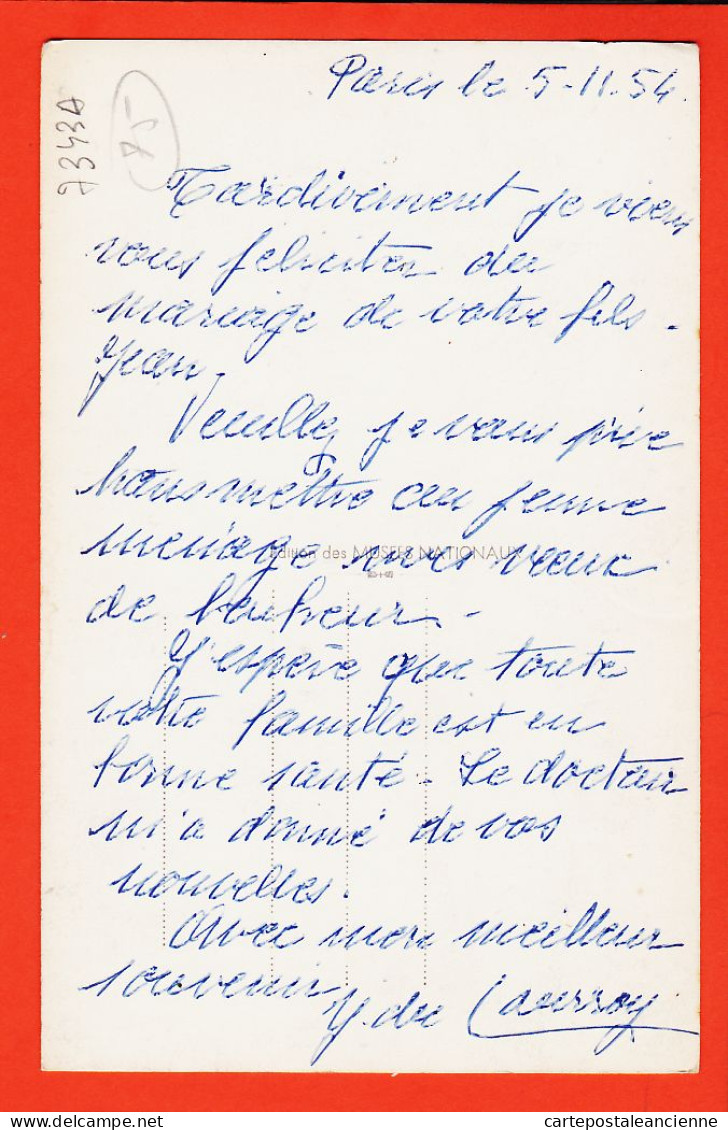 Paris le 5-11-54
7343A
75
Tardivement je viens
vous féliciter du
mariage de votre fils
Jean.
Veuillez je vous prie
transmettre au jeune
ménage mes vœux
Edition des MUSÉES NATIONAUX
de bonheur.
J'espère que toute
votre famille est en
bonne santé. Le docteur
m'a donné de vos
nouvelles.
Avec mon meilleur
souvenir
Y. du
delcampe.net
cartepostaleancienne